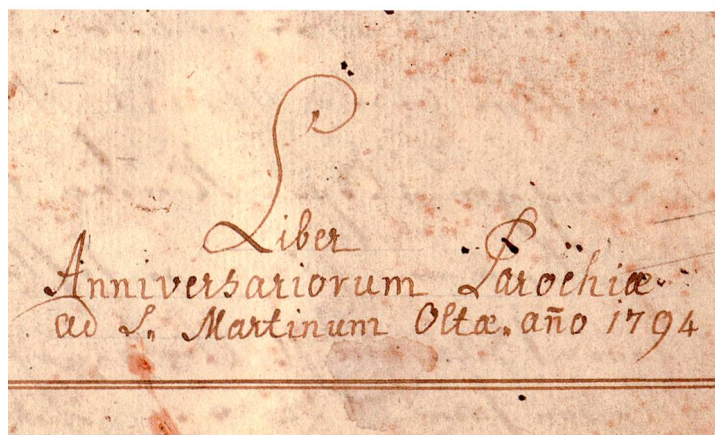 Liber
Anniversariorum Parochiæ
ad S. Martinum Oltæ. año 1794